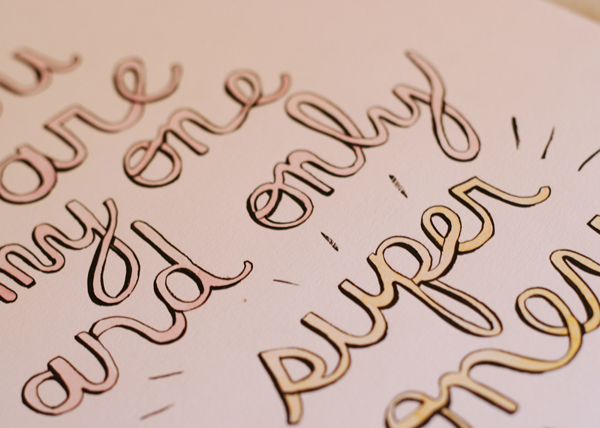 are
my one
and only
super